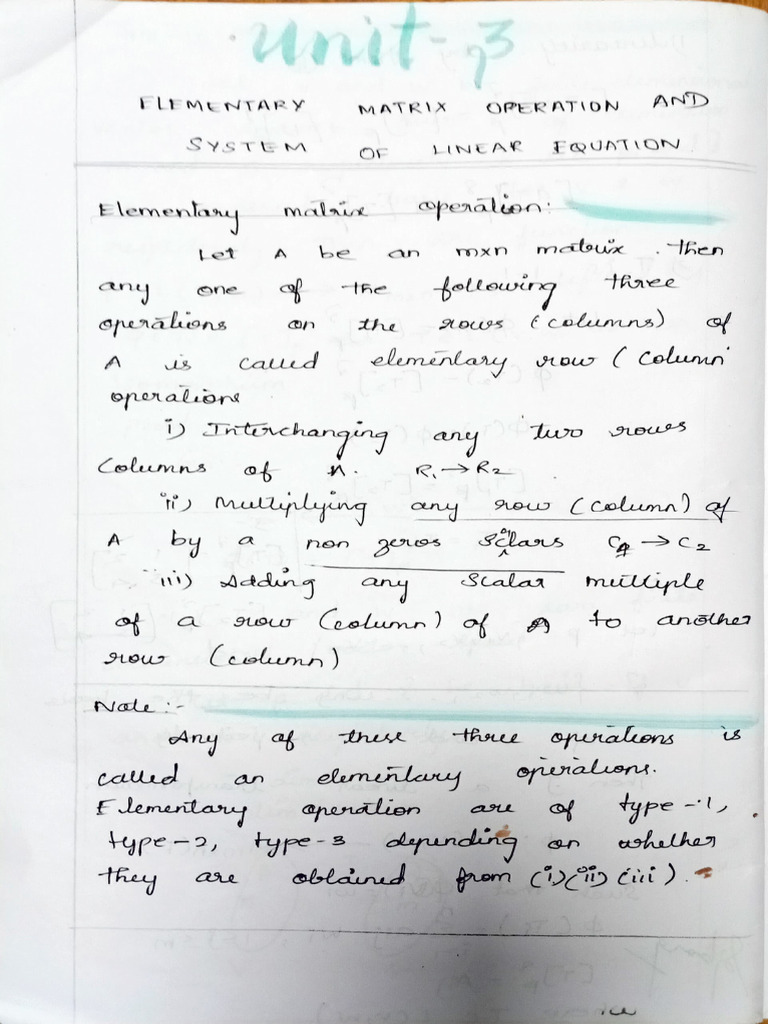 Unit-3
ELEMENTARY MATRIX OPERATION AND
SYSTEM OF LINEAR EQUATION
Elementary matrix operation:
Let A be an mxn matrix. Then
any one of the following three
operations on the rows (columns) of
A is called elementary row (column
operations
i) Interchanging any two rows
columns of A. R₁ → R₂
ii) Multiplying any row (column) of
A by a non zeros scalars C₁ → C₂
iii) Adding any scalar multiple
of a row (column) of A to another
row (column)
Note :-
Any of these three operations is
called an elementary operations.
Elementary operation are of type-1,
type-2, type-3 depending on whether
they are obtained from (i) (ii) (iii).